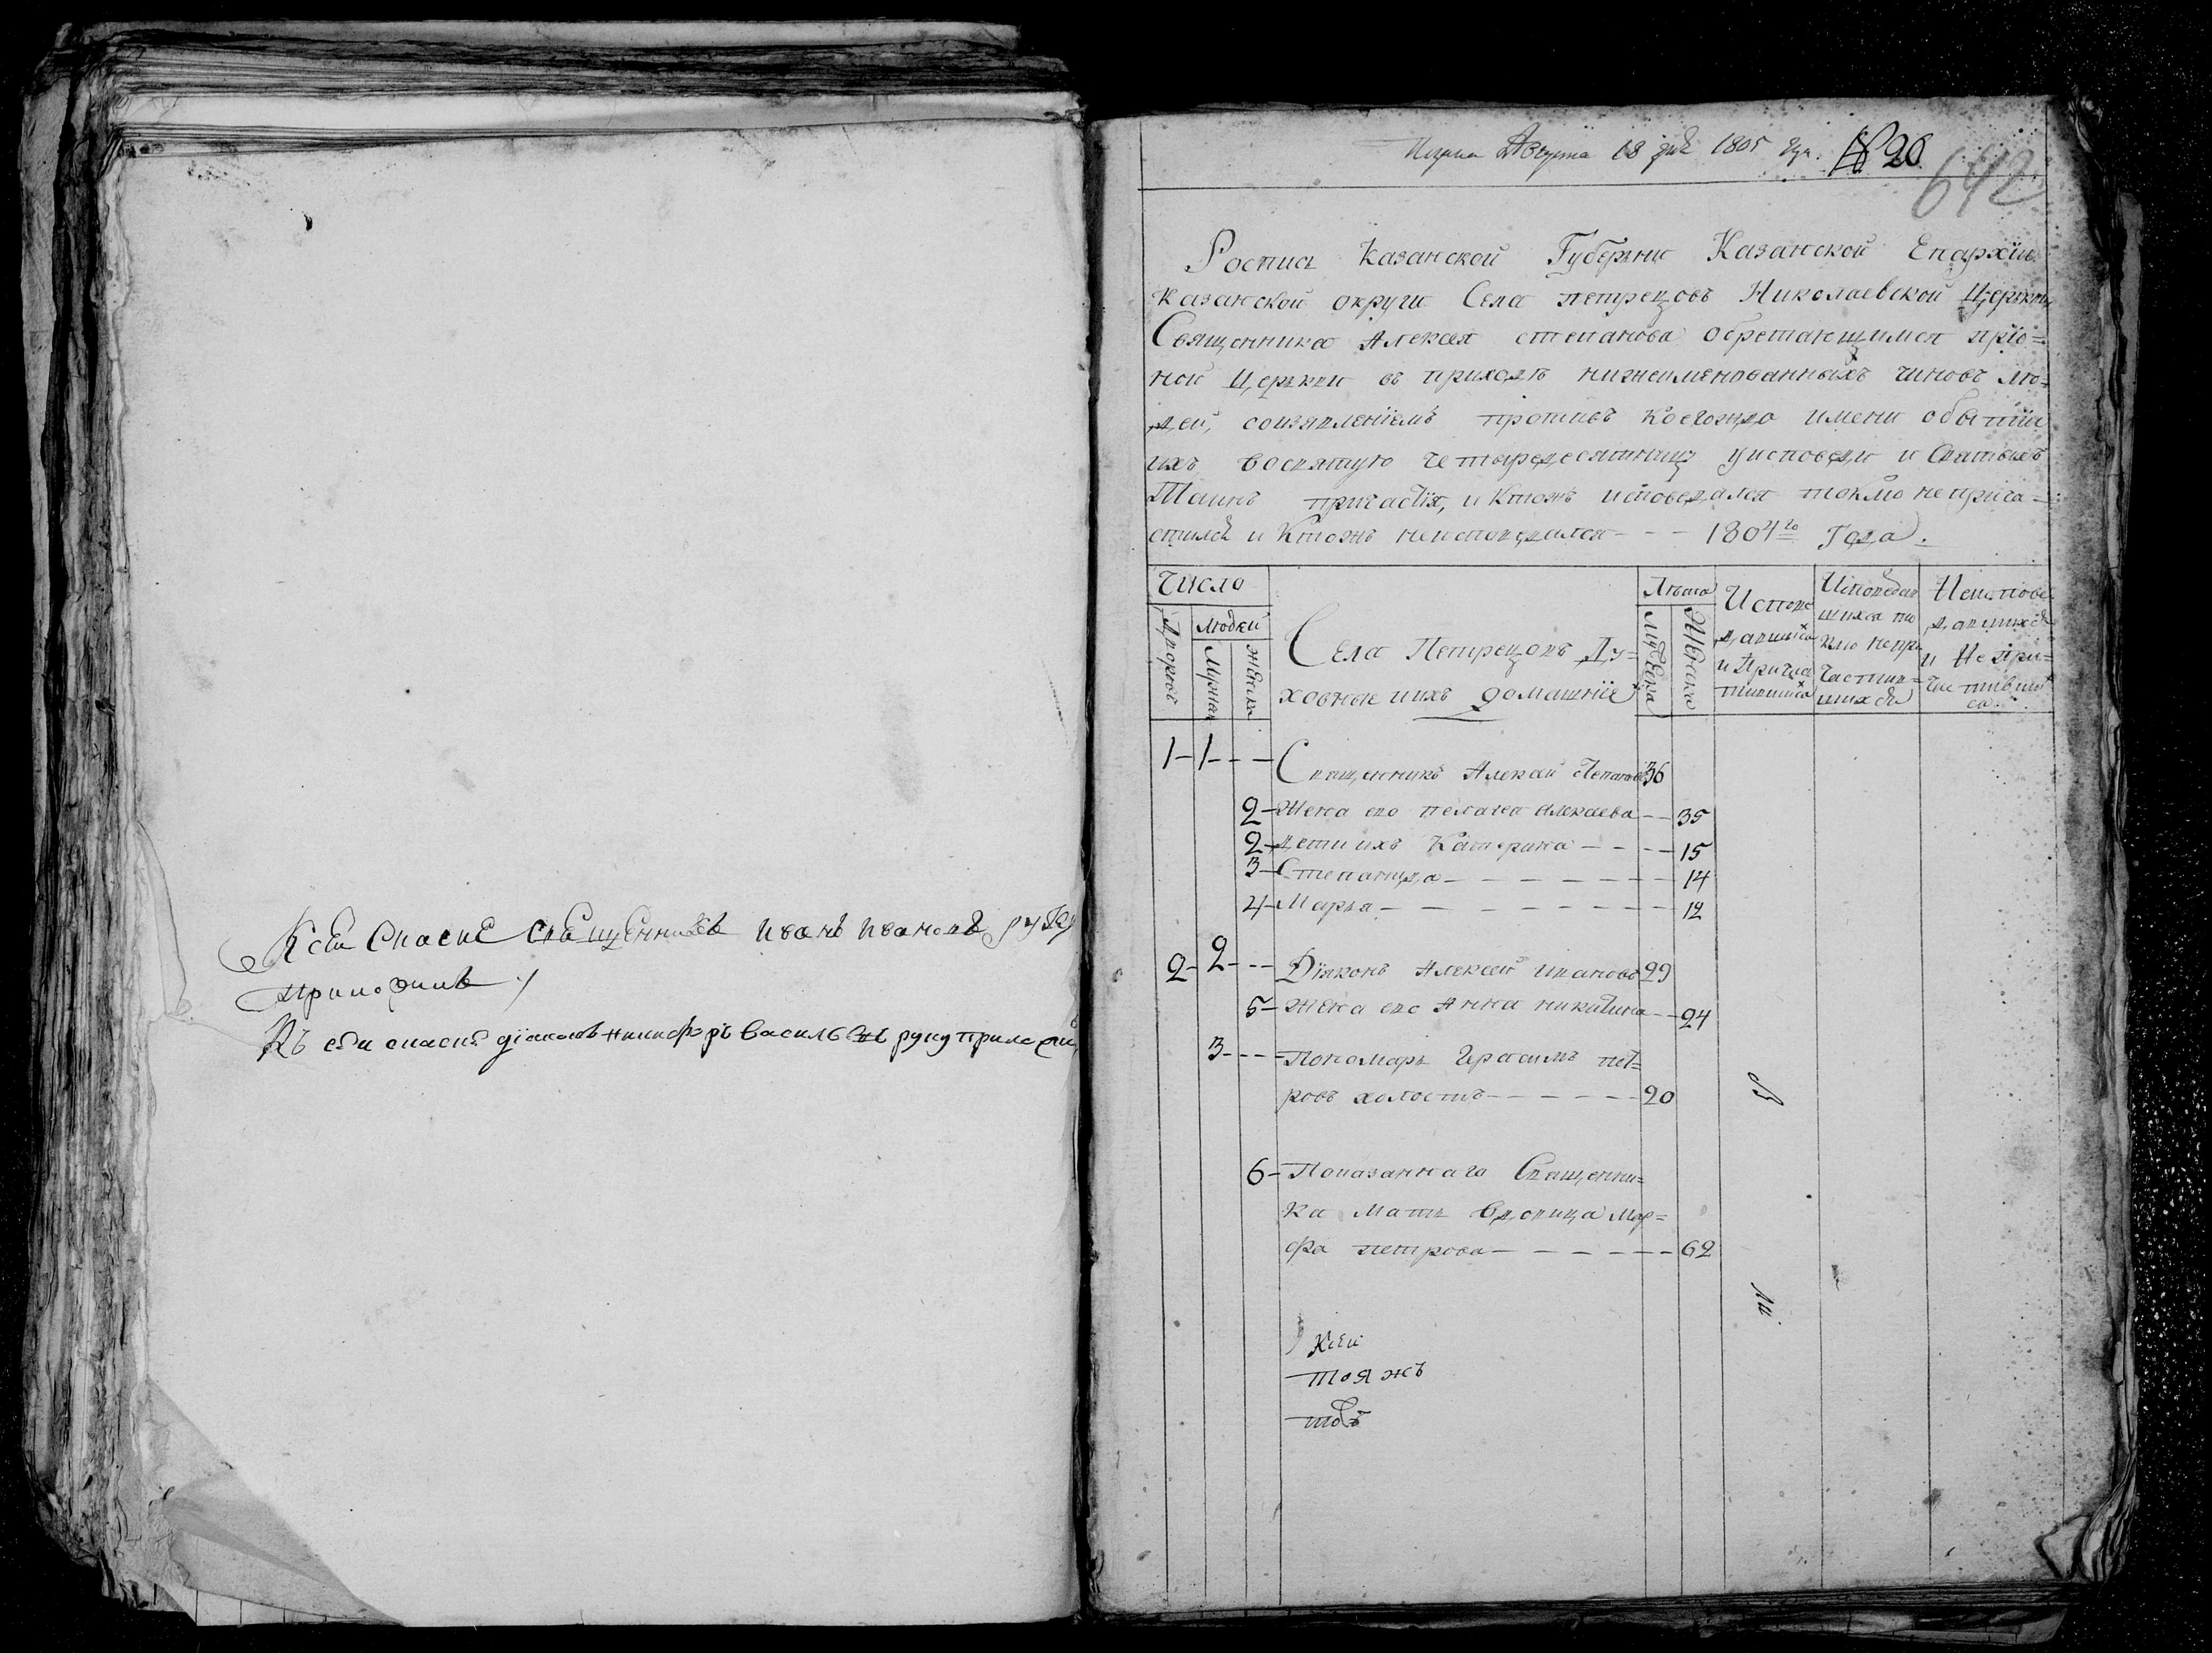 К сей росписе священникъ Иванъ Ивановъ руку
приложилъ
Къ сей росписе діаконъ Никифоръ Васильевъ руку приложи
Августа 18 дня 1805 года. № 20
642
Роспись Казанской Губернии Казанской Епархїи
Казанской округи Села Петрецовъ Николаевской Церкви
Священника Алексея Степанова обретающимся при о=
ной церкви въ приходе нижеименованныхъ чиновъ лю=
дей, соизявленїемъ противъ коегождо имени о бытїи
ихъ во святую четыредесятницу у исповеди и Святыхъ
Таинъ причастїя, и Ктожъ исповедался токмо не прича=
стился и Ктожъ неисповедался - - - 1804го Года.
Число
Дворовъ
людей
Мужска
женска
Села Петрецовъ Ду=
ховные и ихъ домашнїе
Лета
Мужеска
Женска
Испове
давшихся
и Прича
стившихся
Исповедав
шихся то
кмо непри
частив=
шихся
Неиспове
давшихся
и Не при=
частивших
ся.
1 - 1 - - - Священникъ Алексей Степановъ 36
2 - Жена его Пелагея Алексаева - - 35
2 - дети ихъ Катерина - - - - 15
3 - Степанида - - - - - - - 14
4 - Марья - - - - - - - - 12
2 - 2 - - - Дїяконъ Алексей Ивановъ 29
5 - Жена его Анна Никитина - - 24
3 - - - - Пономарь Герасимъ пет=
ровъ холостъ - - - - - - 20
6 - Показаннаго Священни=
ка мать вдовица Мар=
фа петрова - - - - - - 62
Ксей
тоя жъ